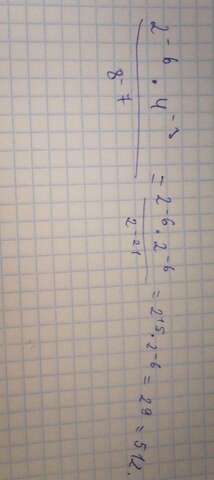 2⁻⁶ · 4⁻³ / 8⁻⁷ = 2⁻⁶ · 2⁻⁶ / 2⁻²¹ = 2¹⁵ · 2⁻⁶ = 2⁹ = 512.